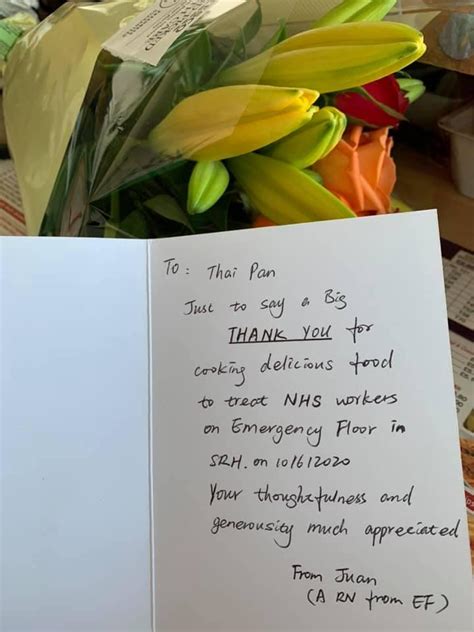 To: Thai Pan
Just to say a Big
THANK YOU for
cooking delicious food
to treat NHS workers
on Emergency Floor in
SRH. on 10/6/2020
Your thoughtfulness and
generousity much appreciated
From Juan
(A RN from EF)